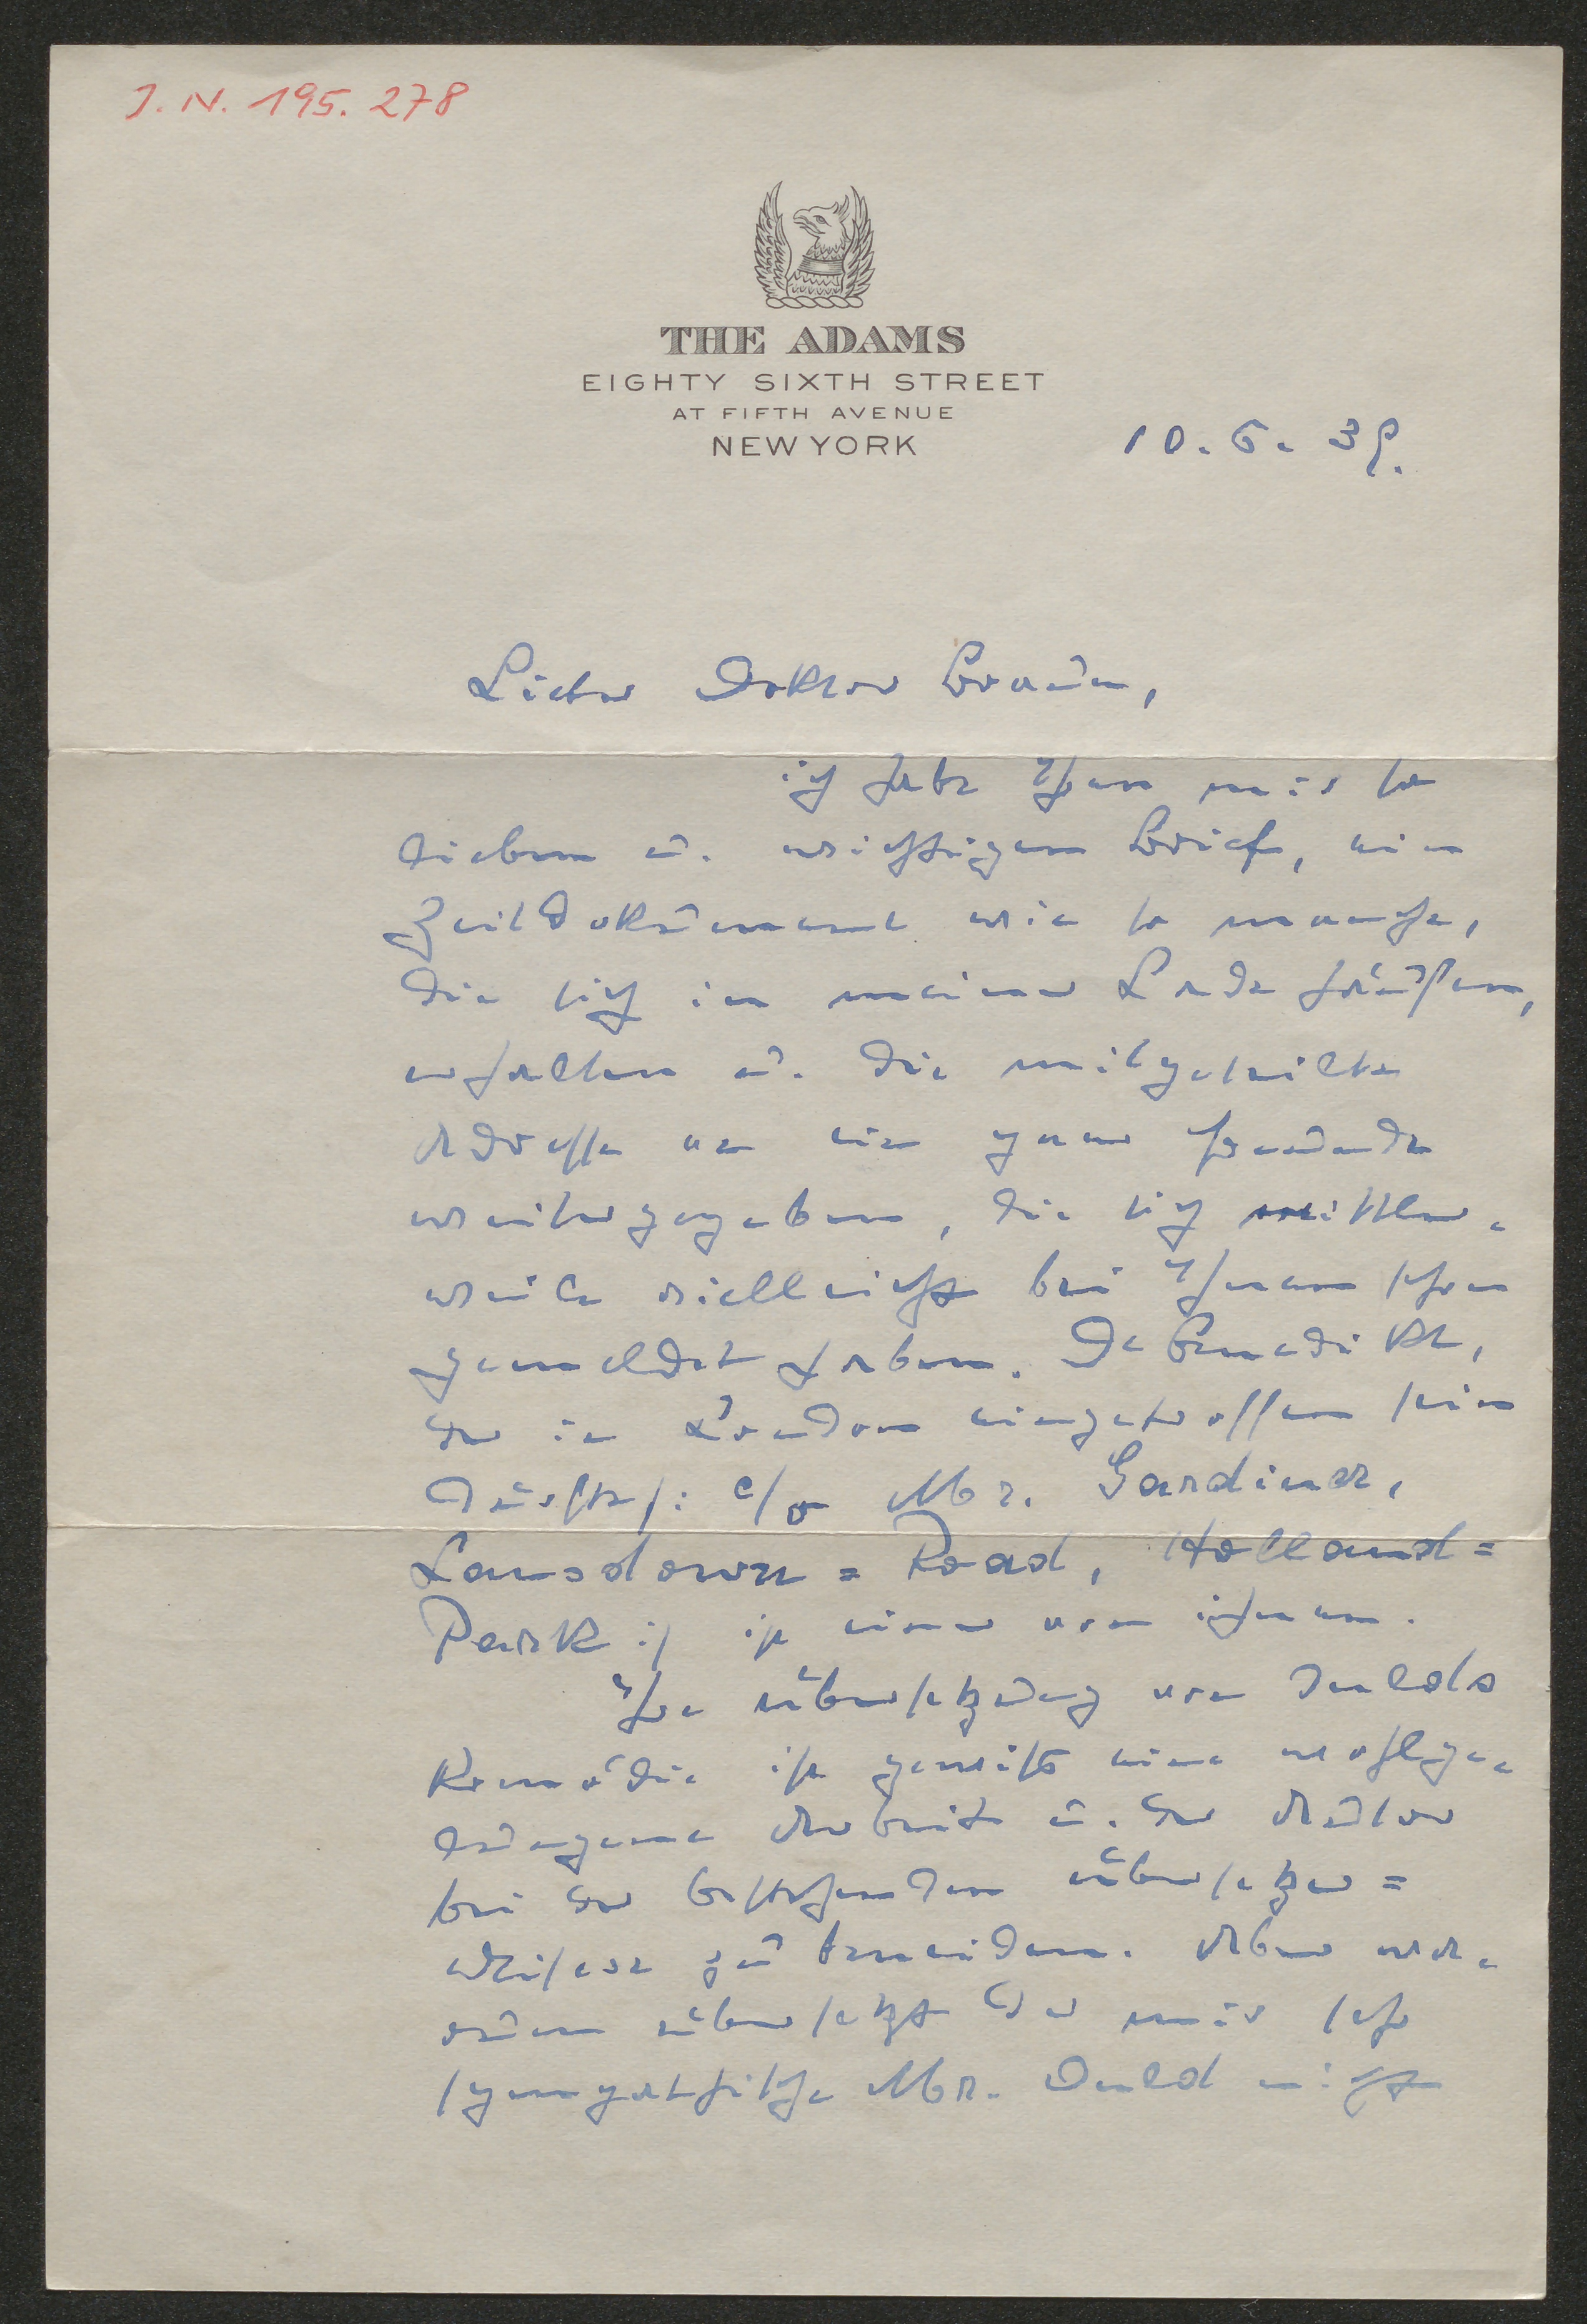 J. N. 195. 278
THE ADAMS
EIGHTY SIXTH STREET
AT FIFTH AVENUE
NEW YORK
10. 5. 39.
Lieber Doktor Braun,
ich habe Ihren mir so
lieben u. wichtigen Brief, ein
Zeitdokument wie so manche,
die sich in meiner Lade häufen,
erhalten u. die mitgeteilte
Adresse an ein paar Freunde
weitergegeben, die sich mittler-
weile vielleicht bei Ihnen schon
gemeldet haben. Dr Benedikt,
der in London eingetroffen sein
dürfte /: c/o Mrs. Gardiner,
Lansdown = Road, Holland =
Park :/ ist einer von ihnen.
Ihre Übersetzung von Oulds
Komödie ist gewiß eine wohlge-
lungene Arbeit u. der Autor
bei der bestehenden Übersetzer =
Misere zu beneiden. Aber wa-
rum übersetzt der mir sehr
sympathische Mr. Ould nicht